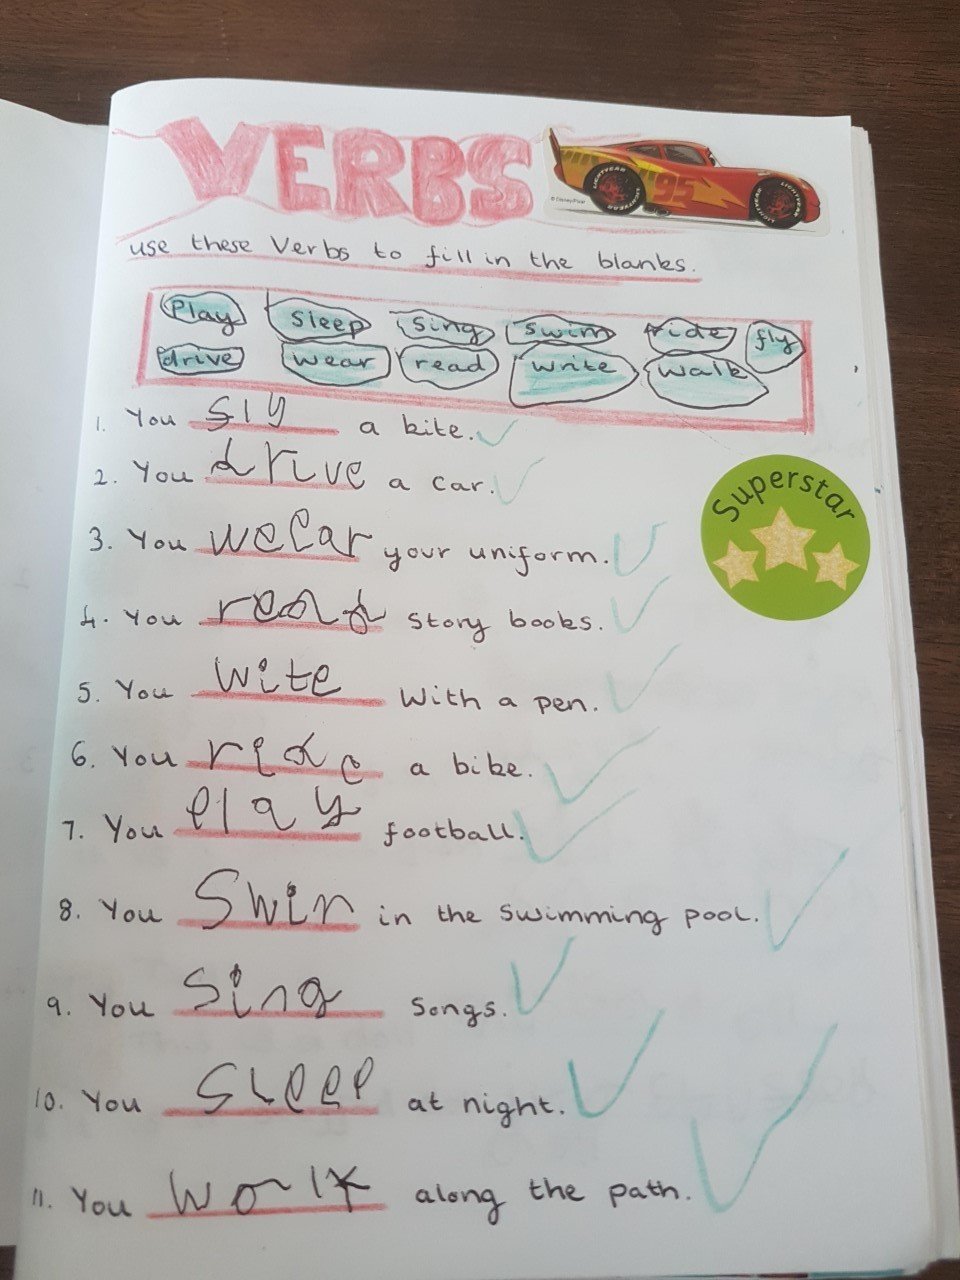 VERBS
95
LIGHTYEAR
LIGHTYEAR
© Disney/Pixar
use these Verbs to fill in the blanks.
Play sleep sing swim ride fly
drive wear read write walk
1. You fly a kite.
2. You drive a car.
3. You wear your uniform.
4. You read story books.
5. You wite with a pen.
6. You ride a bike.
7. You play football.
8. You Swin in the swimming pool.
9. You Sing songs.
10. You Sleep at night.
11. You walk along the path.
Superstar